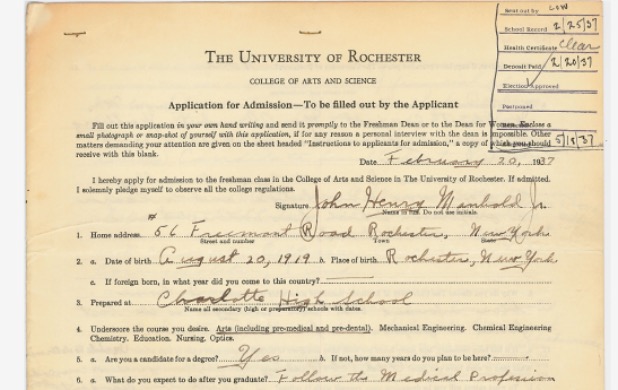 Sent out by LOW
School Record 2/25/37
Health Certificate Clear
Deposit Paid 2/20/37
Election Approved
Postponed
5/15/37
THE UNIVERSITY OF ROCHESTER
COLLEGE OF ARTS AND SCIENCE
Application for Admission—To be filled out by the Applicant
Fill out this application in your own hand writing and send it promptly to the Freshman Dean or to the Dean for Women. Enclose a
small photograph or snap-shot of yourself with this application, if for any reason a personal interview with the dean is impossible. Other
matters demanding your attention are given on the sheet headed "Instructions to applicants for admission," a copy of which you should
receive with this blank.
Date February 20, 1937
I hereby apply for admission to the freshman class in the College of Arts and Science in The University of Rochester. If admitted,
I solemnly pledge myself to observe all the college regulations.
Signature John Henry Manhold Jr.
Name in full. Do not use initials.
1. Home address #56 Freemont Road Rochester, New York
Street and number Town State
2. a. Date of birth August 20, 1919 b. Place of birth Rochester, New York
c. If foreign born, in what year did you come to this country?
3. Prepared at Charlotte High School
Name all secondary (high or preparatory) schools with dates.
4. Underscore the course you desire. Arts (including pre-medical and pre-dental). Mechanical Engineering. Chemical Engineering
Chemistry. Education. Nursing. Optics.
5. a. Are you a candidate for a degree? Yes b. If not, how many years do you plan to be here?
6. a. What do you expect to do after you graduate? Follow the Medical Profession